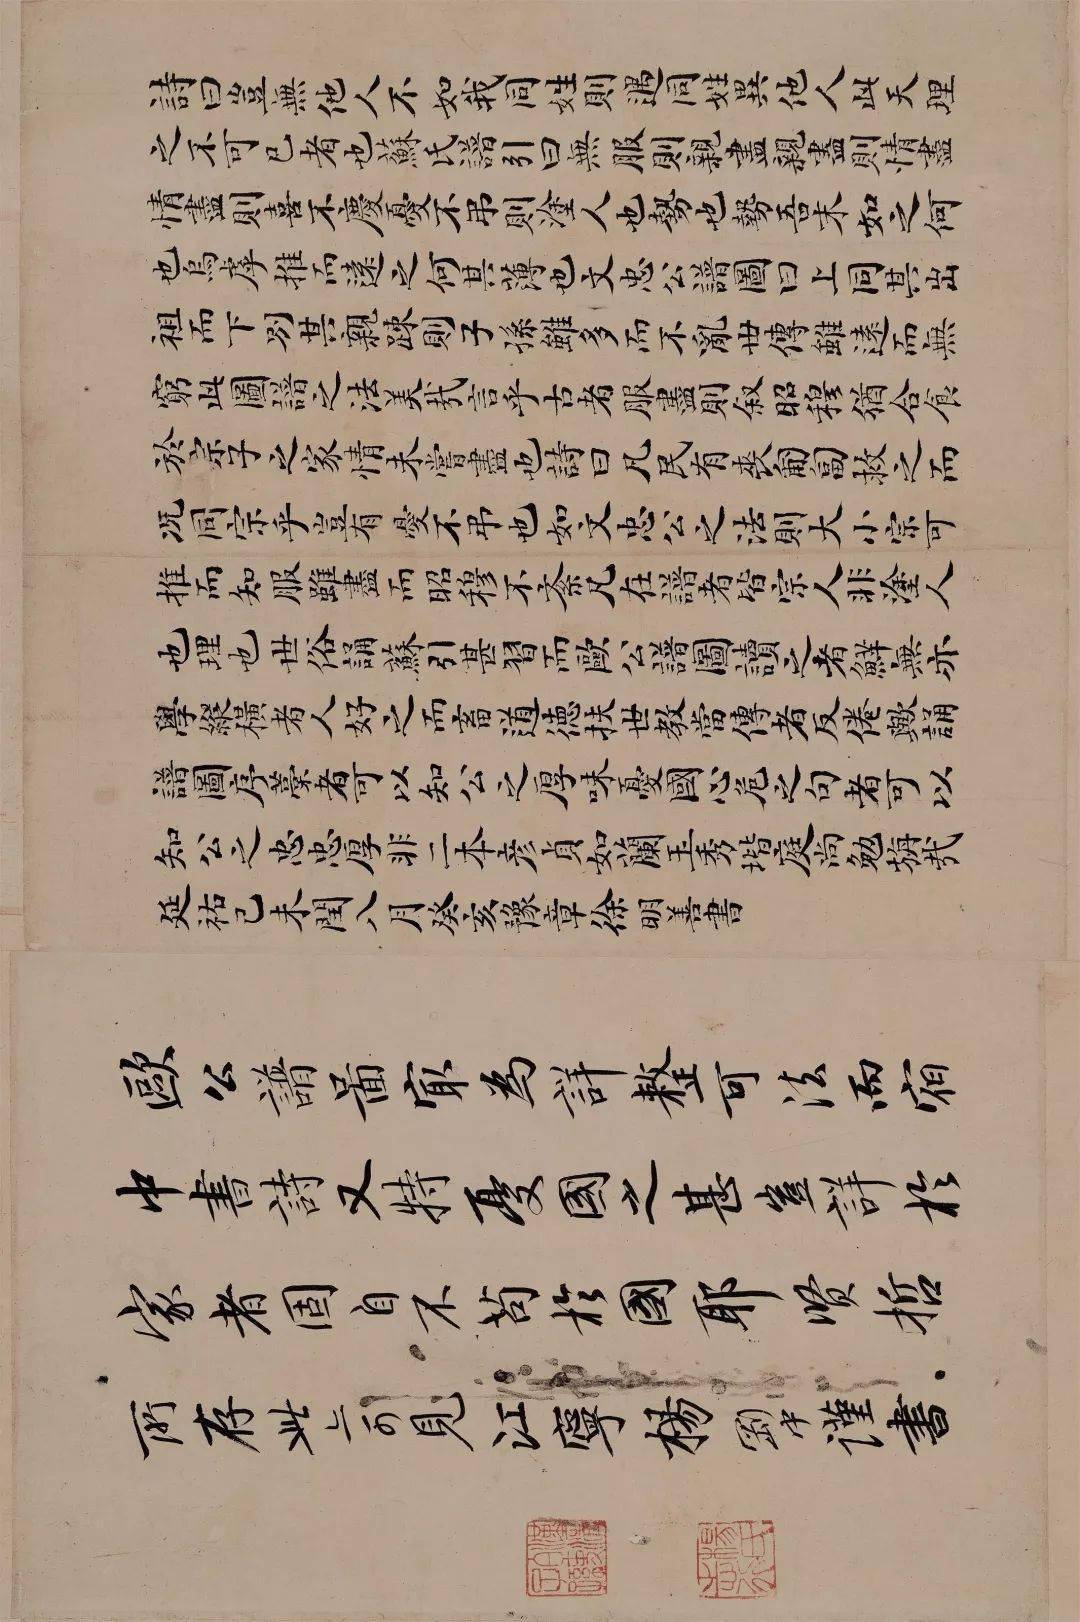 詩曰豈無他人不如我同姓則遇同姓異他人此天理
之不可已者也蘇氏譜引曰無服則親盡親盡則情盡
情盡則喜不慶憂不弔則塗人也勢也勢吾末如之何
也烏虖推而遠之何其薄也文忠公譜圖曰上同其出
祖而下別其親踈則子孫雖多而不亂世傳雖遠而無
窮此圖譜之法美哉言乎古者服盡則叙昭穆猶合食
於宗子之家情未嘗盡也詩曰凡民有喪匍匐救之而
况同宗乎豈有憂不弔也如文忠公之法則大小宗可
推而知服雖盡而昭穆不紊凡在譜者皆宗人非塗人
也理也世俗誦蘇引甚習而歐公譜圖讀之者鮮無亦
學縱橫者人好之而畜道德扶世教當傳者反倦歟誦
譜圖序藁者可以知公之厚味憂國心危之句者可以
知公之忠忠厚非二本彦貞如蘭玉秀堦庭尚勉旃哉
延祐己未閏八月癸亥豫章徐明善書
歐公譜啚宲為詳整可法而宿
中書詩又特憂國之甚豈詳於
家者固自不苟於國耶贤哲
所存此亦可見江寧楊剛中謹書